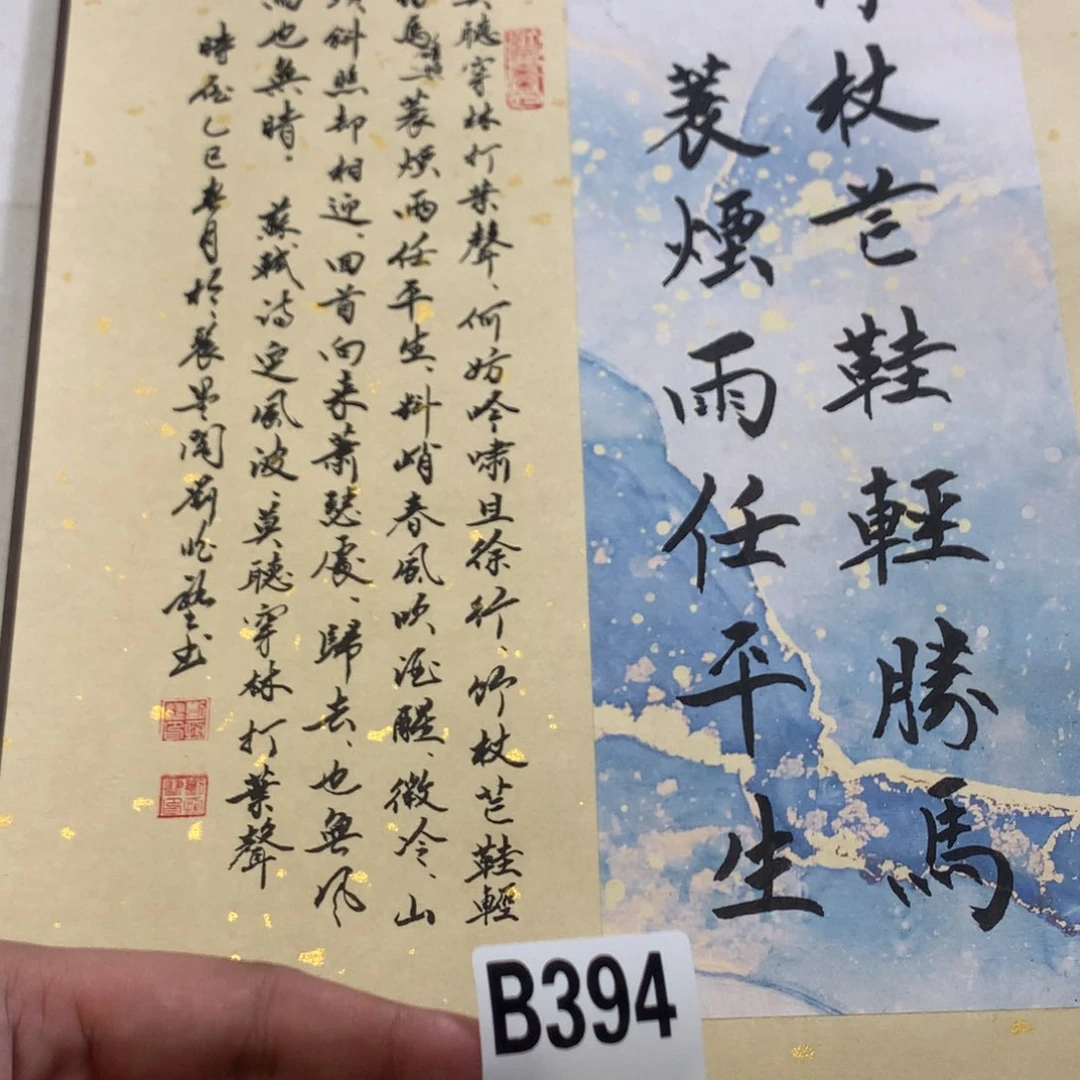 杖芒鞋輕勝馬
蓑煙雨任平生
聽穿林打葉聲、何妨吟嘯且徐行、竹杖芒鞋輕
馬、一蓑煙雨任平生、料峭春風吹酒醒、微冷、山
頭斜照却相迎、回首向来蕭瑟處、歸去、也無風
雨也無晴。蘇軾诗定風波、莫聽穿林打葉聲
時在乙巳春月於
書
B394